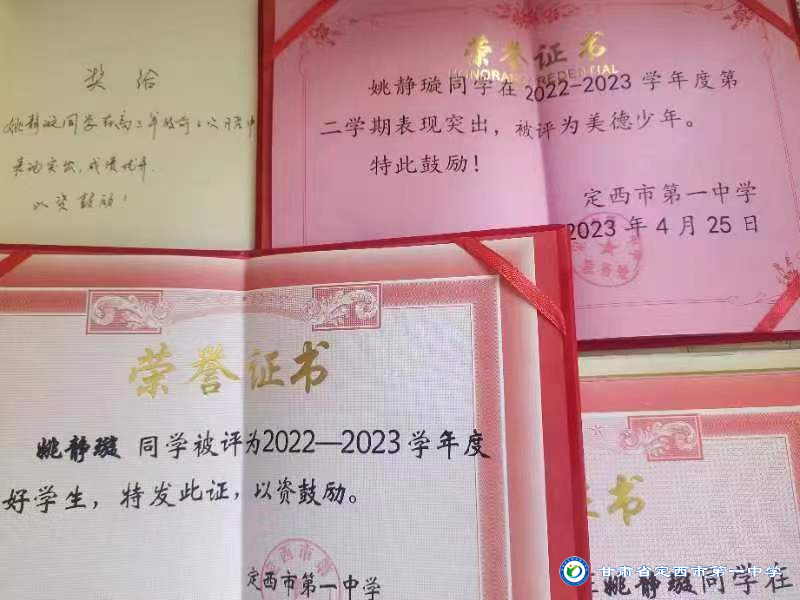 奖给
姚静璇同学在高二年级第2次月考中
表现突出,成绩优异.
以资鼓励!
荣誉证书
HONORARY CREDENTIAL
姚静璇同学在2022-2023学年度第
二学期表现突出，被评为美德少年。
特此鼓励！
定西市第一中学
2023年4月25日
荣誉证书
姚静璇 同学被评为2022—2023学年度
好学生，特发此证，以资鼓励。
定西市第一中学
证书
姚静璇同学在
甘肃省定西市第一中学